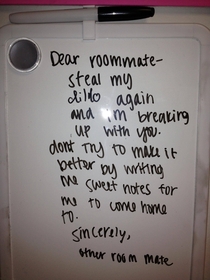 Dear roommate-
steal my
dildo again
and im breaking
up with you.
dont try to make it
better by writing
me sweet notes for
me to come home
to.
sincerely,
other room mate